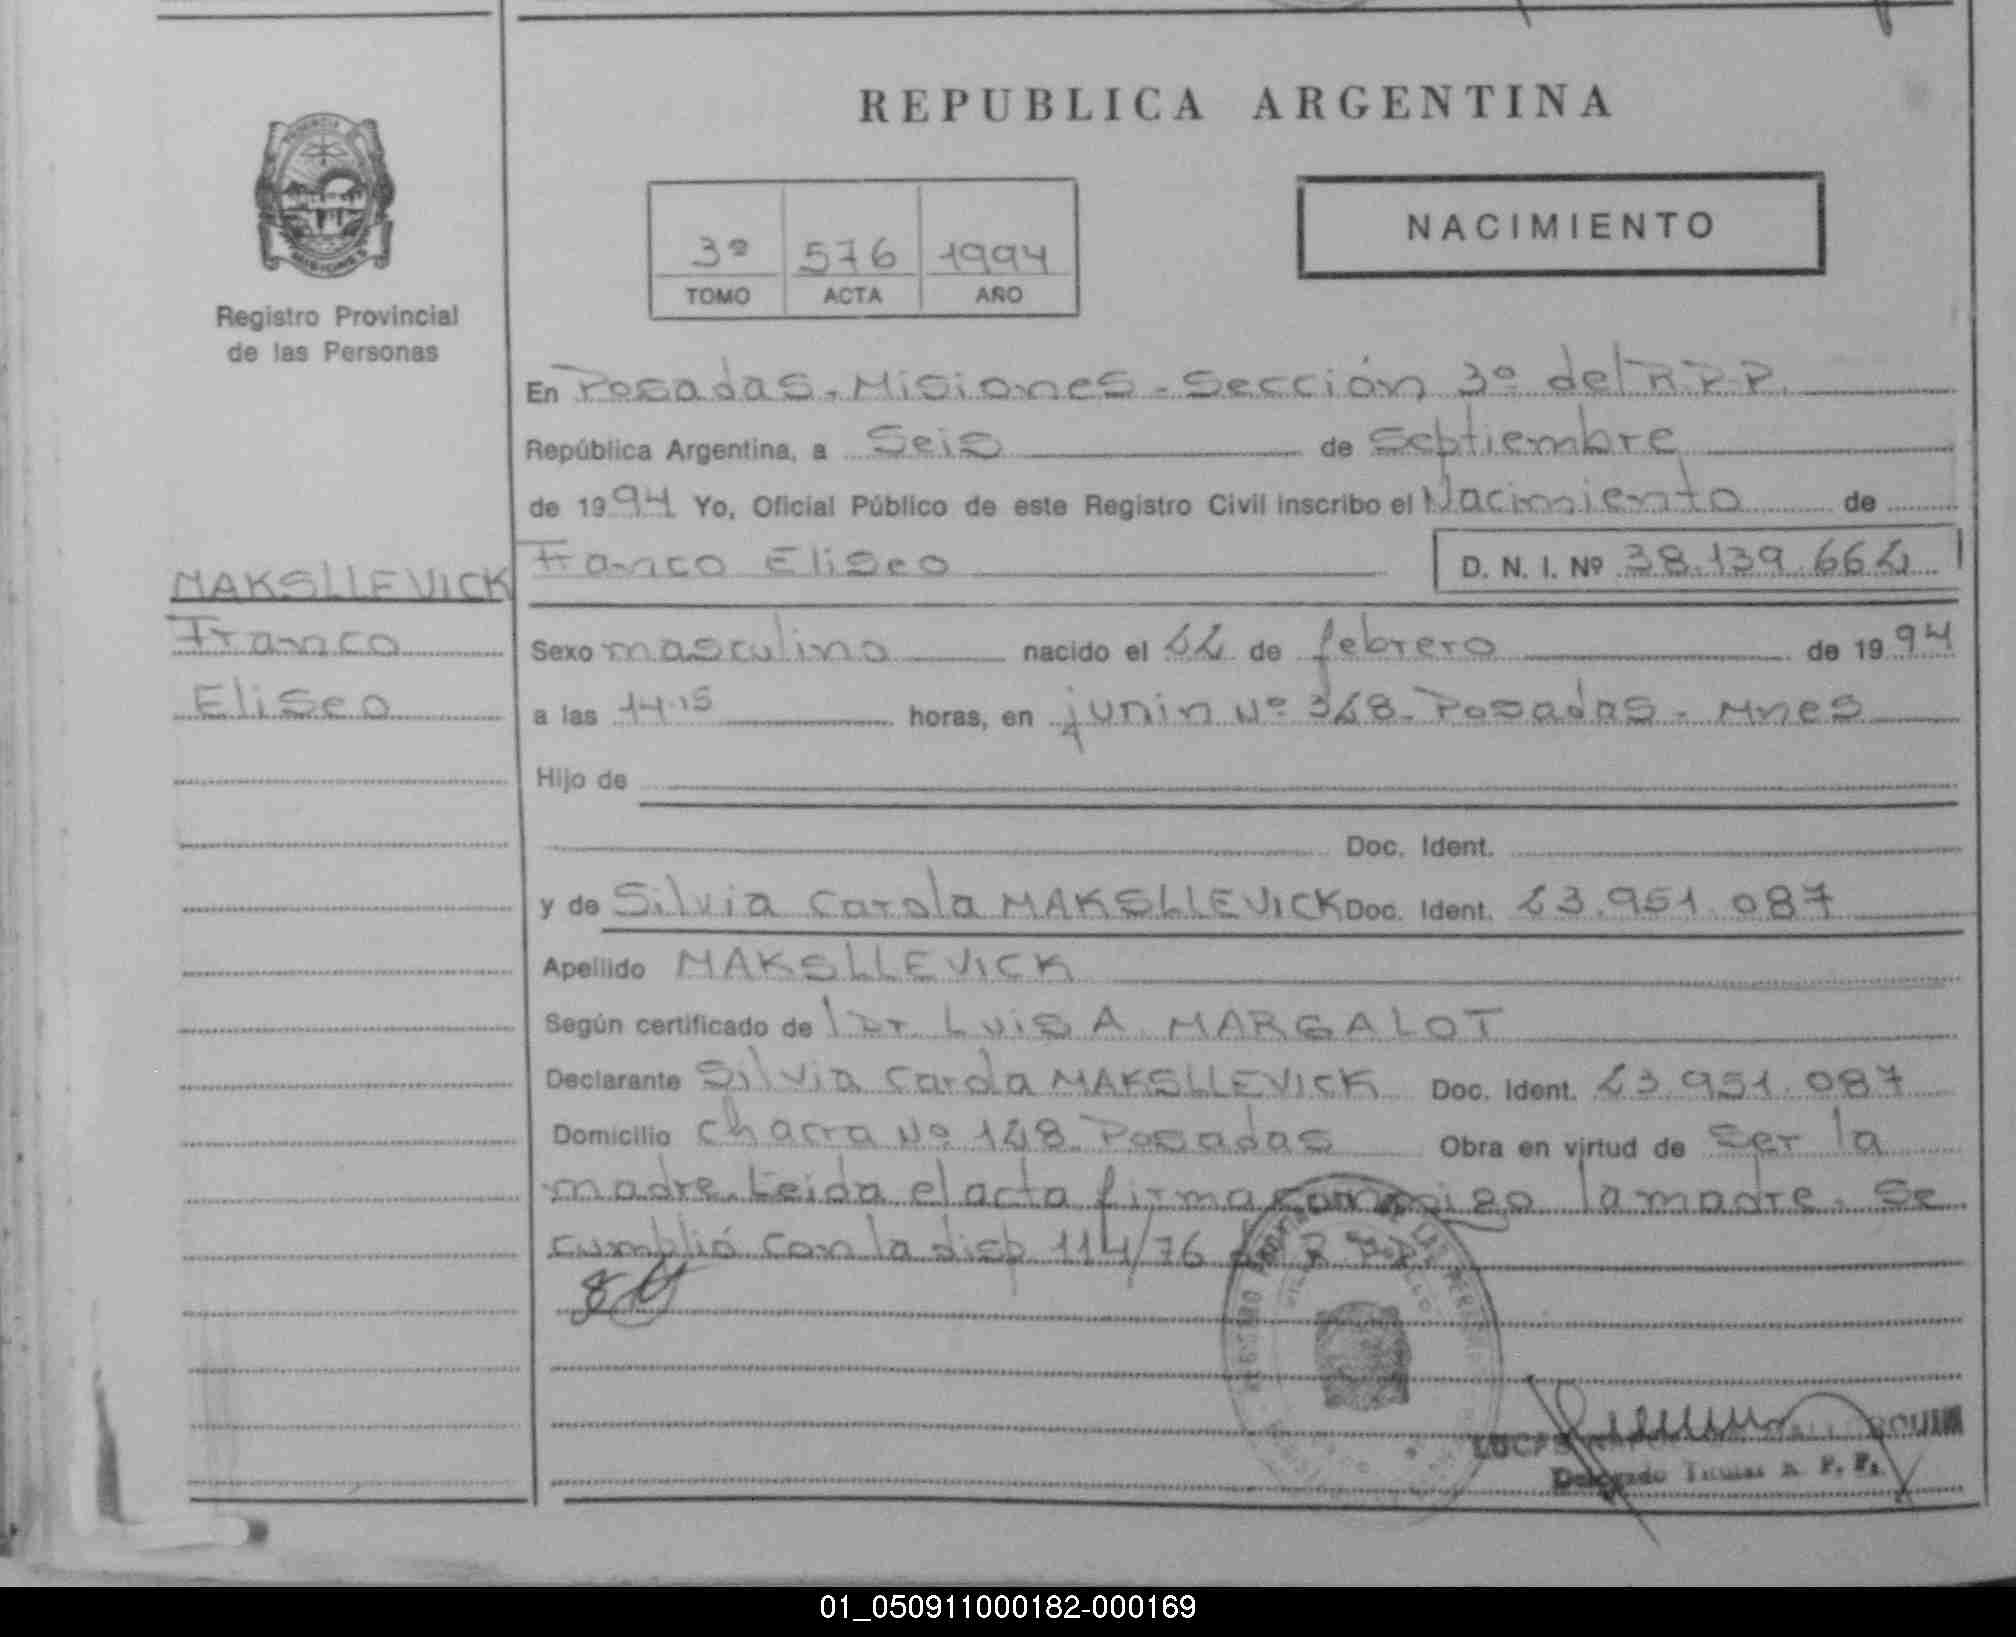 REPUBLICA ARGENTINA
NACIMIENTO
3º 576 1994
TOMO ACTA AÑO
Registro Provincial
de las Personas
En Posadas - Misiones - Sección 3º del R.P.P.
República Argentina, a Seis de Septiembre
de 1994 Yo, Oficial Público de este Registro Civil inscribo el Nacimiento de
Franco Eliseo D. N. I. Nº 38.139.662
MAKSLLEVICK
Franco
Eliseo
Sexo masculino nacido el 22 de febrero de 1994
a las 14.15 horas, en junin Nº 328 - Posadas - Mnes
Hijo de
Doc. Ident.
y de Silvia Carola MAKSLLEVICK Doc. Ident. 23.951.087
Apellido MAKSLLEVICK
Según certificado de l Dr. LUIS A. MARGALOT
Declarante Silvia Carola MAKSLLEVICK Doc. Ident. 23.951.087
Domicilio chacra Nº 128 Posadas Obra en virtud de ser la
madre. Leida el acta firma conmigo la madre. Se
cumplió con la disp 114/76 R.P.P.
LUCAS
Delegado Titular R. P. P.
01_050911000182-000169